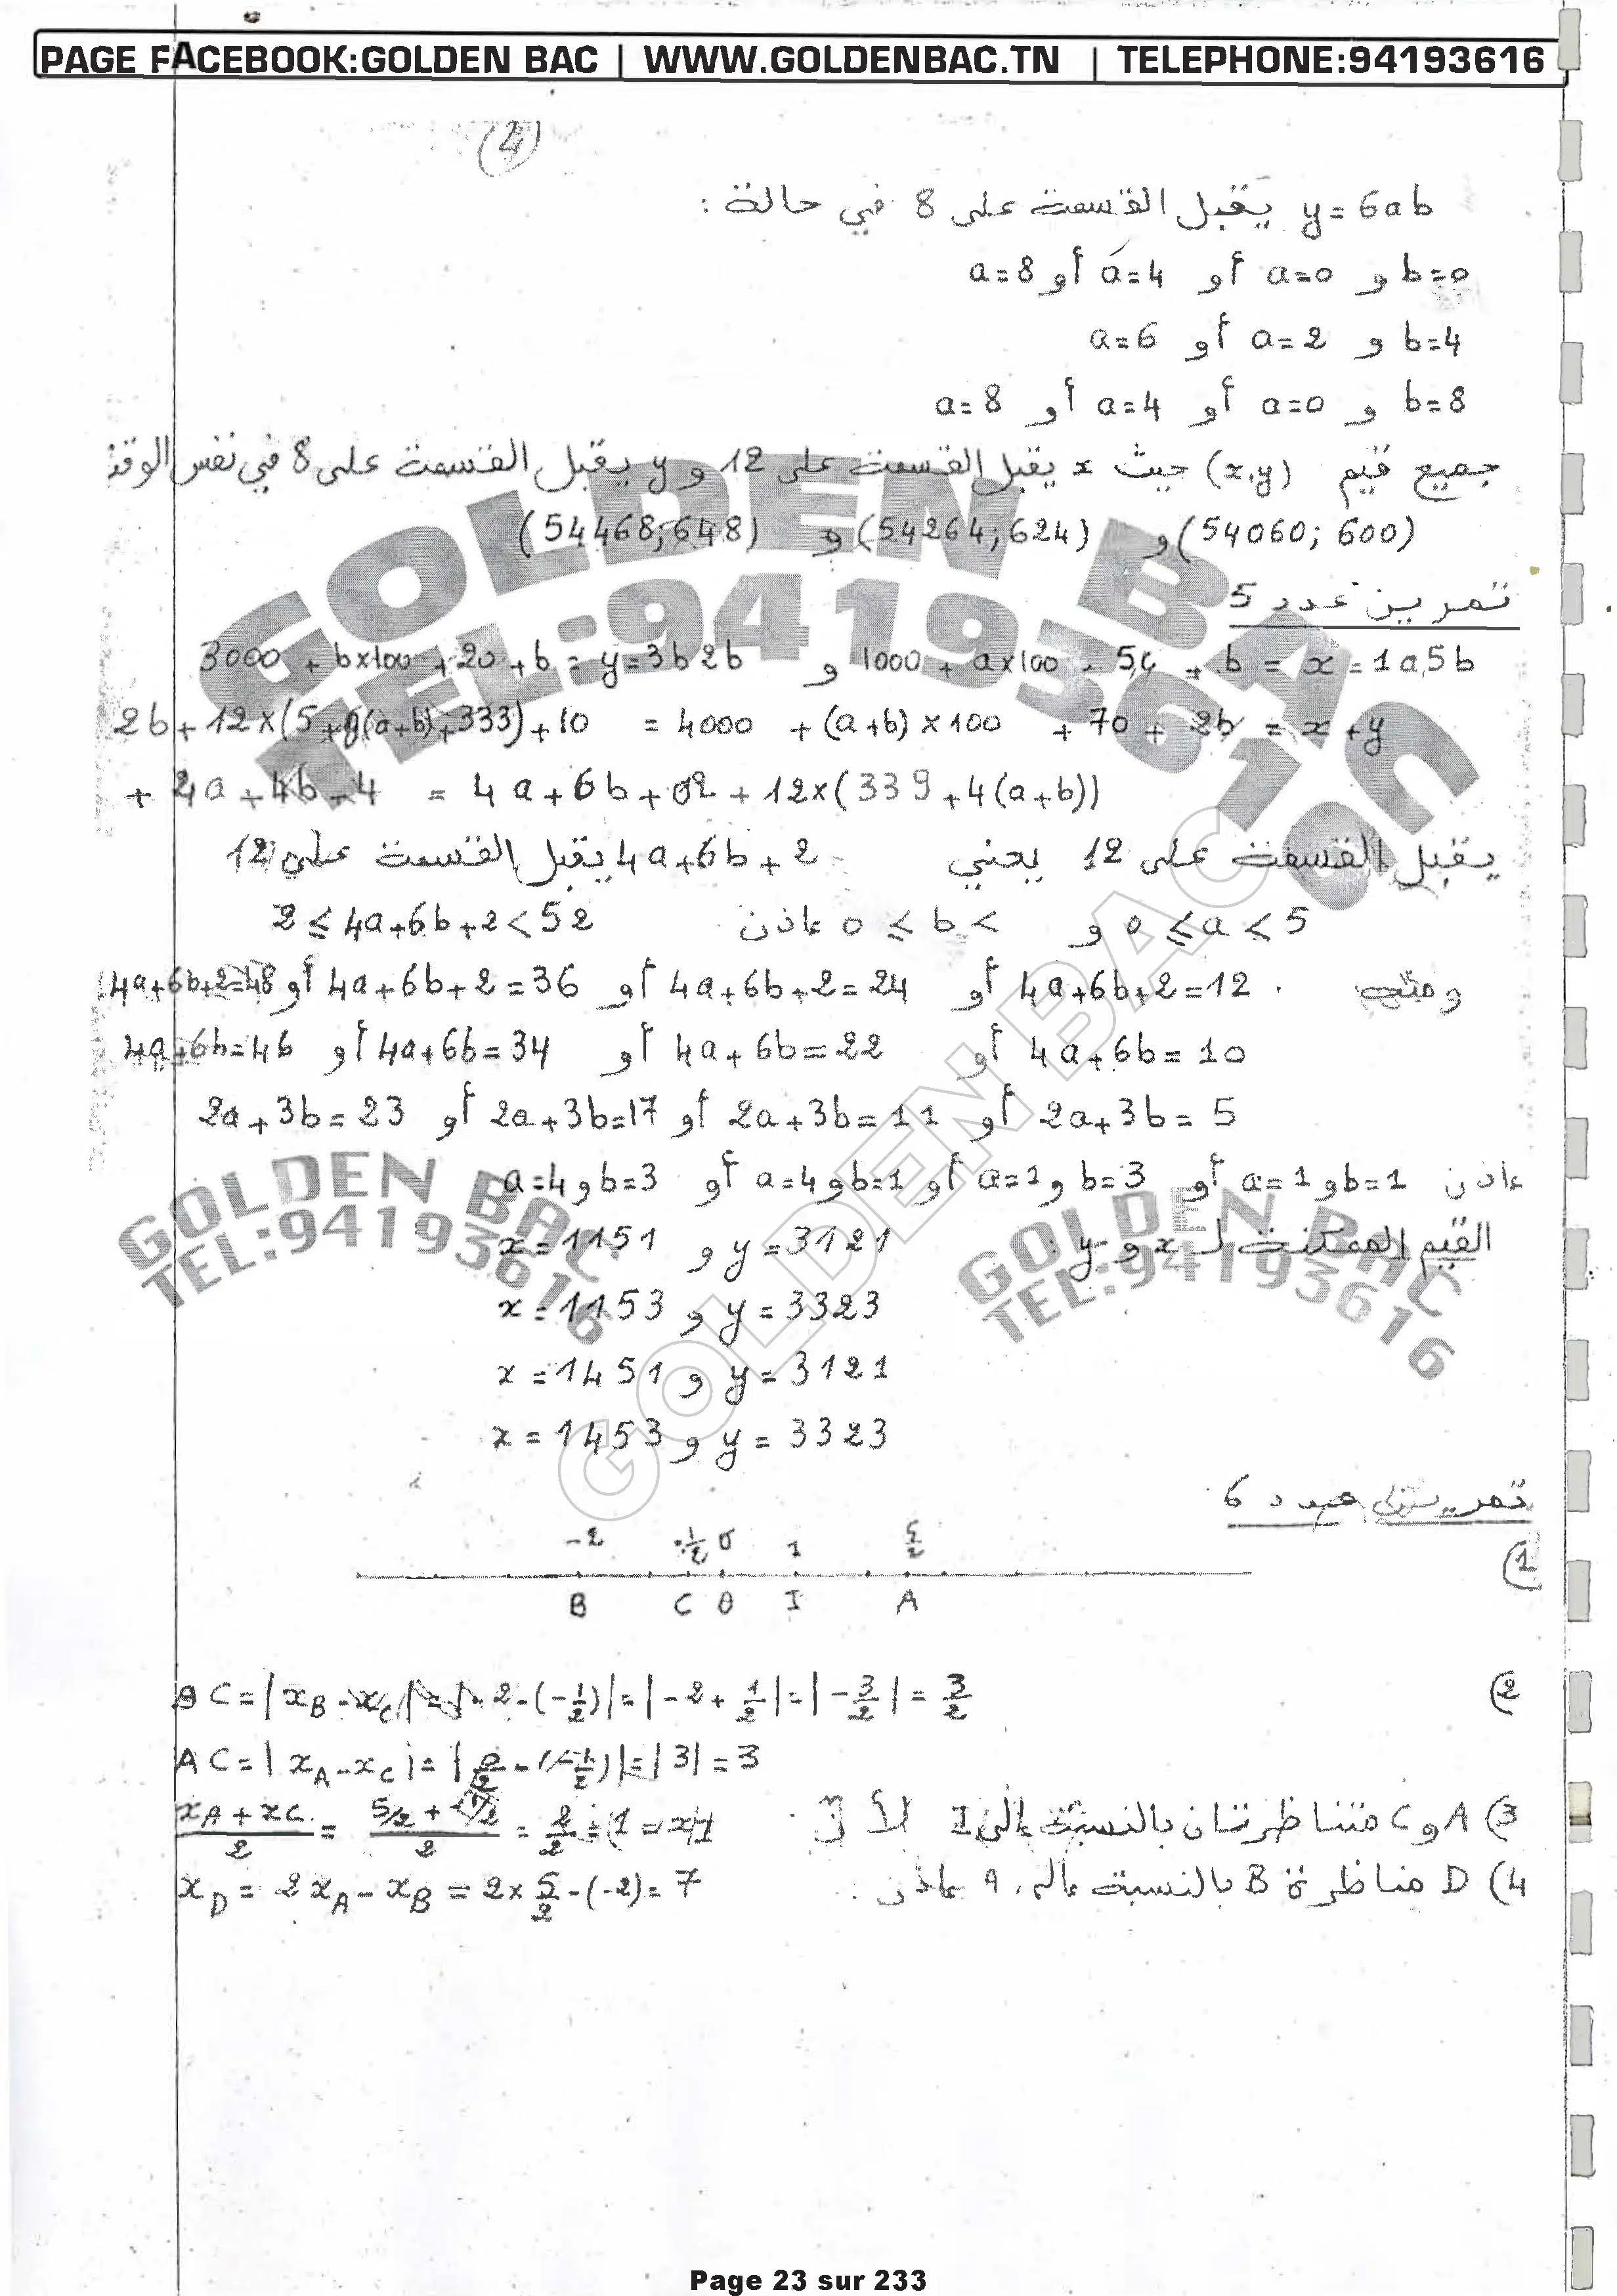 PAGE FACEBOOK:GOLDEN BAC | WWW.GOLDENBAC.TN | TELEPHONE:94193616
(4)
y = 6ab يقبل القسمة على 8 في حالة :
b=0 و a=0 أو a=4 أو a=8
b=4 و a=2 أو a=6
b=8 و a=0 أو a=4 أو a=8
جميع قيم (x,y) حيث x يقبل القسمة على 12 و y يقبل القسمة على 8 في نفس الوقت
(54060; 600) و (54264; 624) و (54468; 648)
تمرين عدد 5
x = 1a5b = b + + a×100 + 1000 و 3000 + b×100 + 20 + b = y = 3b2b
x + y = 2b + 70 + (a+b)×100 + 4000 = 2b + 12×(5+8(a+b)+333)+10
+ 4a + 4b + 4 = 4a + 6b + 02 + 12×(339 + 4(a+b))
يقبل القسمة على 12 يعني 4a+6b+2 يقبل القسمة على 12
0 ≤ a < 5 و 0 ≤ b < عاذن 2 ≤ 4a+6b+2 < 52
ومنه 4a+6b+2=12 أو 4a+6b+2=24 أو 4a+6b+2=36 أو 4a+6b+2=48
4a+6b=10 أو 4a+6b=22 أو 4a+6b=34 أو 4a+6b=46
2a+3b=5 أو 2a+3b=11 أو 2a+3b=17 أو 2a+3b=23
عاذن a=1 و b=1 أو a=1 و b=3 أو a=4 و b=1 أو a=4 و b=3
القيم الممكنة لـ x و y
x = 1151 و y = 3121
x = 1153 و y = 3323
x = 1451 و y = 3121
x = 1453 و y = 3323
تمرين عدد 6
(1
-2 -1/2 0 1 5/2
B C O I A
(2 BC = |xB - xC| = |-2-(-1/2)| = |-2+1/2| = |-3/2| = 3/2
AC = |xA - xC| = |5/2-(-1/2)| = |3| = 3
(3 A و C متناظرتان بالنسبة عالى I لأنّ (xA + xC)/2 = = 2/2 = 1 = xI
(4 D مناظرة B بالنسبة عالى A عاذن xD = 2xA - xB = 2×5/2-(-2) = 7
GOLDEN BAC
TEL:94193610
GOLDEN BAC
TEL:94193616
GOLDEN BAC
TEL:94193616
GOLDEN BAC
Page 23 sur 233